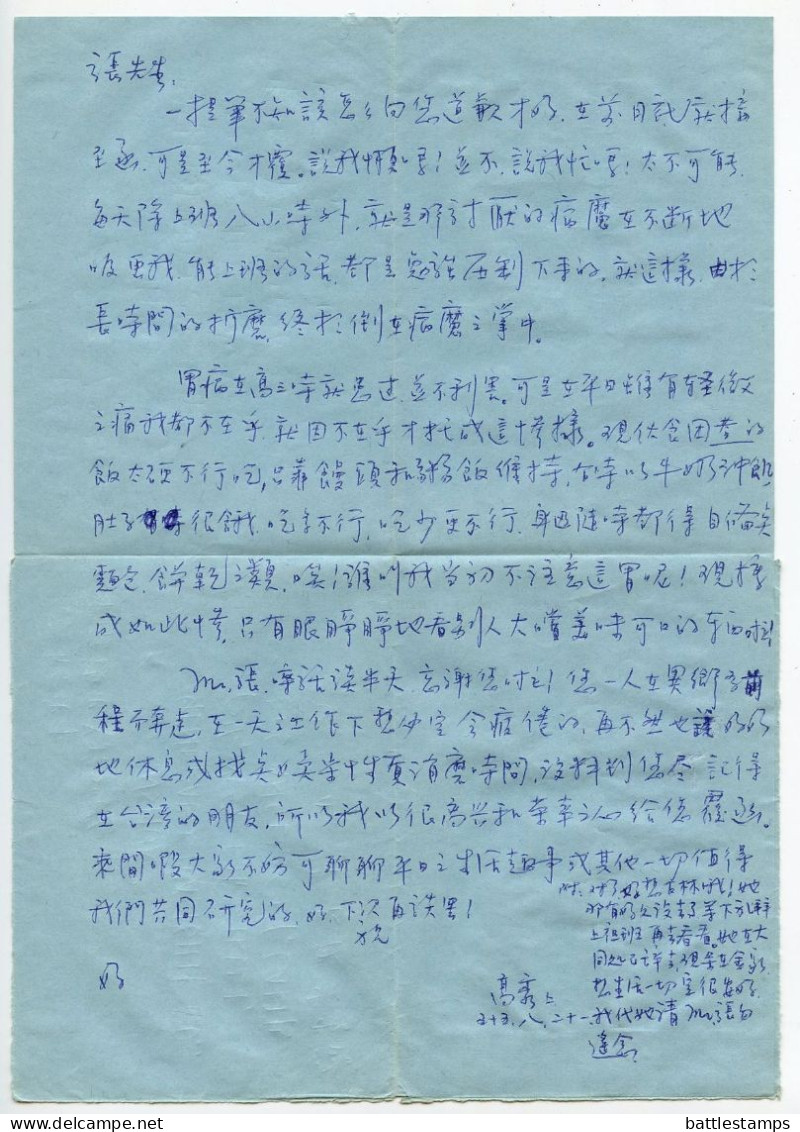 張先生,
一提筆不知該怎么向您道歉才好,在前日就接
至函,可是至今才覆。說我懶嗎!並不,說我忙嗎!太不可能,
每天除上班八小時外,就是那討厭的病魔在不斷地
我,能上班的話,都是勉強壓制下來的,就這樣,由於
長時間的折磨,終於倒在病魔之掌中。
胃病在高三時就患过,並不利害。可是在平日雖有輕微
之痛我都不在乎,就因不在乎才托成這慘樣。現伙食團煮的
飯太硬不行吃,只靠饅頭和稀飯維持,有時以牛奶沖飢,
肚子很餓,吃多不行,吃少更不行,身边隨時都得自備些
麵包、餅乾之類,唉!誰叫我当初不注意這胃呢!現樣
成如此慘,只有眼睜睜地看別人大嚐美味可口的东西吧!
Mr.張,噜話談半天,忘謝您吧!您一人在異鄉為前
程而奔走,在一天工作下想必定会疲倦的,再不然也讓好好
地休息或找些娛樂性質消磨時間,沒料到您尽記得
在台湾的朋友,所以我以很高兴和榮幸之心給您覆函。
來閒暇大家不妨可聊聊平日之生活趣事或其他一切值得
我們共同研究的。好,下次再談罢!
祝
好
高秀上
五十三、八、二十一
她
那有好久没去了,等下礼拜
上祖班再去看看。她在大
同处已辞去,現是在金家,
想生活一切定很安好
我代她請Mr.張勿
遠念